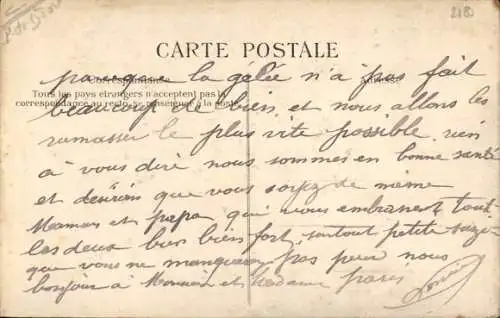 2180
CARTE POSTALE
Correspondance
Tous les pays étrangers n'acceptent pas la
correspondance au recto, se renseigner à la poste
parceque la gélée n'a pas fait
beaucoup de bien, et nous allons les
ramasser le plus vite possible rien
à vous dire nous sommes en bonne santé
et désirons que vous soyez de même
Maman et papa qui vous embrassent tout
les deux bien bien fort, surtout petite
que vous ne manquiez pas pour nous
bonjour à Monsieur et Madame